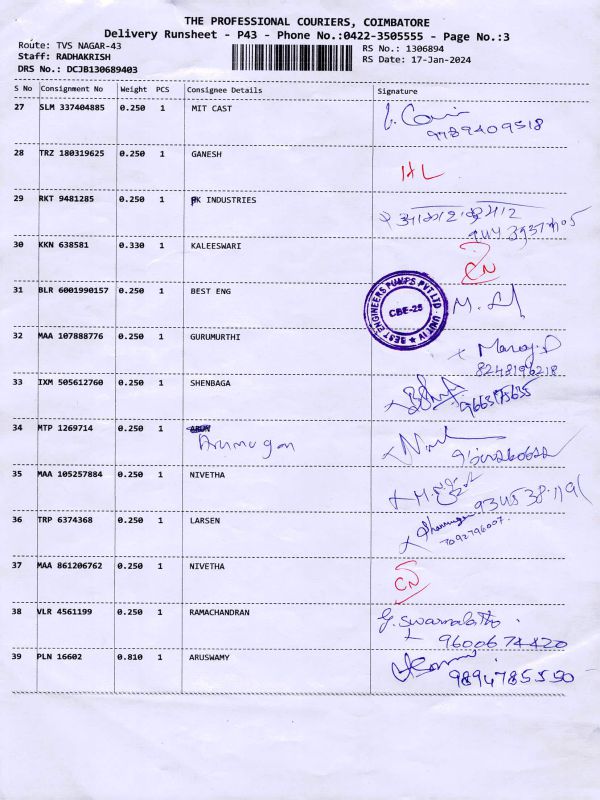 THE PROFESSIONAL COURIERS, COIMBATORE
Delivery Runsheet - P43 - Phone No.:0422-3505555 - Page No.:3
Route: TVS NAGAR-43
RS No.: 1306894
Staff: RADHAKRISH
RS Date: 17-Jan-2024
DRS No.: DCJB130689403
S No Consignment No Weight PCS Consignee Details Signature
27 SLM 337404885 0.250 1 MIT CAST
9789409518
28 TRZ 180319625 0.250 1 GANESH HL
29 RKT 9481285 0.250 1 PK INDUSTRIES
30 KKN 638581 0.330 1 KALEESWARI
CN
31 BLR 6001990157 0.250 1 BEST ENG
BEST ENGINEERS PUMPS PVT LTD UNIT IV
CBE-25
32 MAA 107888776 0.250 1 GURUMURTHI
Manoj.P
8248196218
33 IXM 505612760 0.250 1 SHENBAGA
9663175635
34 MTP 1269714 0.250 1
Arumugan
35 MAA 105257884 0.250 1 NIVETHA
36 TRP 6374368 0.250 1 LARSEN
7092796007
37 MAA 861206762 0.250 1 NIVETHA
CN
38 VLR 4561199 0.250 1 RAMACHANDRAN
G. Swarnalatha
9600674420
39 PLN 16602 0.810 1 ARUSWAMY
9894785550